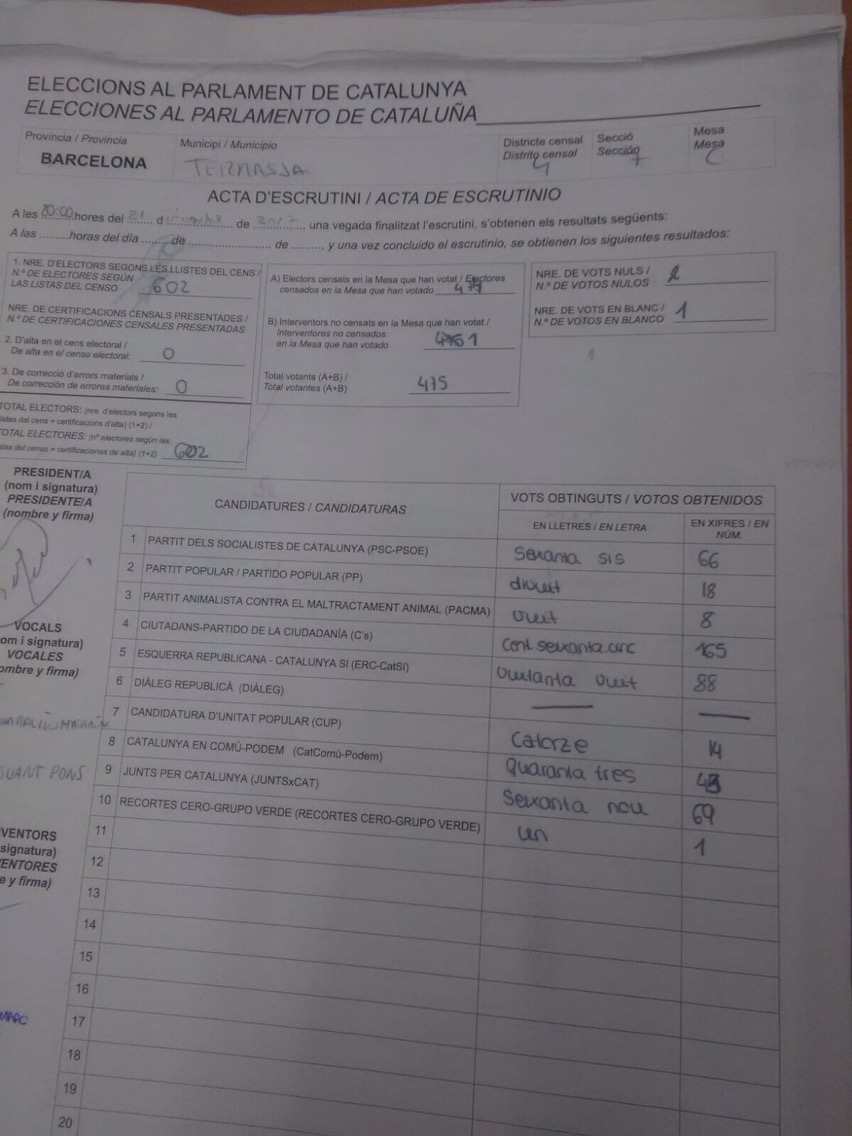 ELECCIONS AL PARLAMENT DE CATALUNYA
ELECCIONES AL PARLAMENTO DE CATALUÑA
Provincia / Provincia
BARCELONA
Municipi / Municipio
TERRASSA
Districte censal
Distrito censal
4
Secció
Sección
7
Mesa
Mesa
C
ACTA D'ESCRUTINI / ACTA DE ESCRUTINIO
A les 20:00 hores del 21 d de 2017, una vegada finalitzat l'escrutini, s'obtenen els resultats següents:
A las ........horas del día ........ de ........................ de ........, y una vez concluido el escrutinio, se obtienen los siguientes resultados:
1. NRE. D'ELECTORS SEGONS LES LLISTES DEL CENS /
N.º DE ELECTORES SEGÚN
LAS LISTAS DEL CENSO 602
NRE. DE CERTIFICACIONS CENSALS PRESENTADES /
N.º DE CERTIFICACIONES CENSALES PRESENTADAS
2. D'alta en el cens electoral /
De alta en el censo electoral: 0
3. De correcció d'errors materials /
De corrección de errores materiales: 0
TOTAL ELECTORS: (nre. d'electors segons les
listes del cens + certificacions d'alta) (1+2) /
TOTAL ELECTORES: (nº electores según las
listas del censo + certificaciones de alta) (1+2) 602
A) Electors censats en la Mesa que han votat / Electores
censados en la Mesa que han votado 474
B) Interventors no censats en la Mesa que han votat /
Interventores no censados
en la Mesa que han votado 1
Total votants (A+B) /
Total votantes (A+B) 475
NRE. DE VOTS NULS /
N.º DE VOTOS NULOS 2
NRE. DE VOTS EN BLANC /
N.º DE VOTOS EN BLANCO 1
PRESIDENT/A
(nom i signatura)
PRESIDENTE/A
(nombre y firma)
VOCALS
(nom i signatura)
VOCALES
(nombre y firma)
GUANT PONS
VENTORS
signatura)
VENTORES
e y firma)
CANDIDATURES / CANDIDATURAS
VOTS OBTINGUTS / VOTOS OBTENIDOS
EN LLETRES / EN LETRA
EN XIFRES / EN NÚM.
1 PARTIT DELS SOCIALISTES DE CATALUNYA (PSC-PSOE) Seixanta sis 66
2 PARTIT POPULAR / PARTIDO POPULAR (PP) divuit 18
3 PARTIT ANIMALISTA CONTRA EL MALTRACTAMENT ANIMAL (PACMA) vuit 8
4 CIUTADANS-PARTIDO DE LA CIUDADANÍA (C's) cent seixanta cinc 165
5 ESQUERRA REPUBLICANA - CATALUNYA SI (ERC-CatSI) Vuitanta vuit 88
6 DIÀLEG REPUBLICÀ (DIÀLEG) — —
7 CANDIDATURA D'UNITAT POPULAR (CUP) Catorze 14
8 CATALUNYA EN COMÚ-PODEM (CatComú-Podem) Quaranta tres 43
9 JUNTS PER CATALUNYA (JUNTSxCAT) Seixanta nou 69
10 RECORTES CERO-GRUPO VERDE (RECORTES CERO-GRUPO VERDE) un 1
11
12
13
14
15
16
17
18
19
20